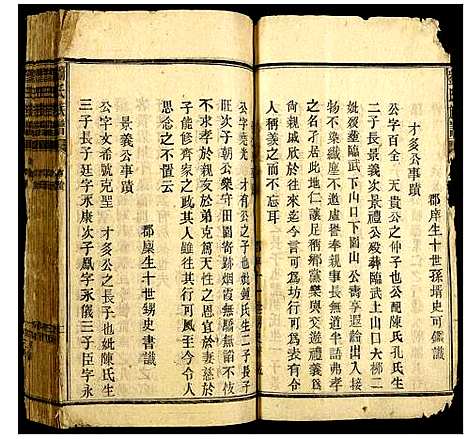 才多公事蹟
郡庠生十世孫壻史可儒識
公字百全 天貴公之仲子也公配陳氏孔氏生
二子長景義次景禮公歿葬臨武上山口大㮧二
妣歿葬臨武下山口下園山 公耆享遐齡出入
物不染纖塵不邀虛譽奉親事長無道半語弗孝
之名孑居此地仁讓足稱鄉黨樂與交遊禮義
人稱義之而不忘耳 迄今言可為坊行可
公字堯光 才有公之子也妣鍾氏生二子長
旺次子朝公樂守田園寄跡烟霞無驕無諂不伎
不求孝於親友於弟克篤天性之恩宜於妻慈於
子能修齊家之化其言其行可風至今令人
思念之不置云
郡庠生十世甥史書識
景義公事蹟
公字文希號克聖 才多公之長子也妣陳氏生
三子長子廷字永康次子鳳字永儀三子臣字永